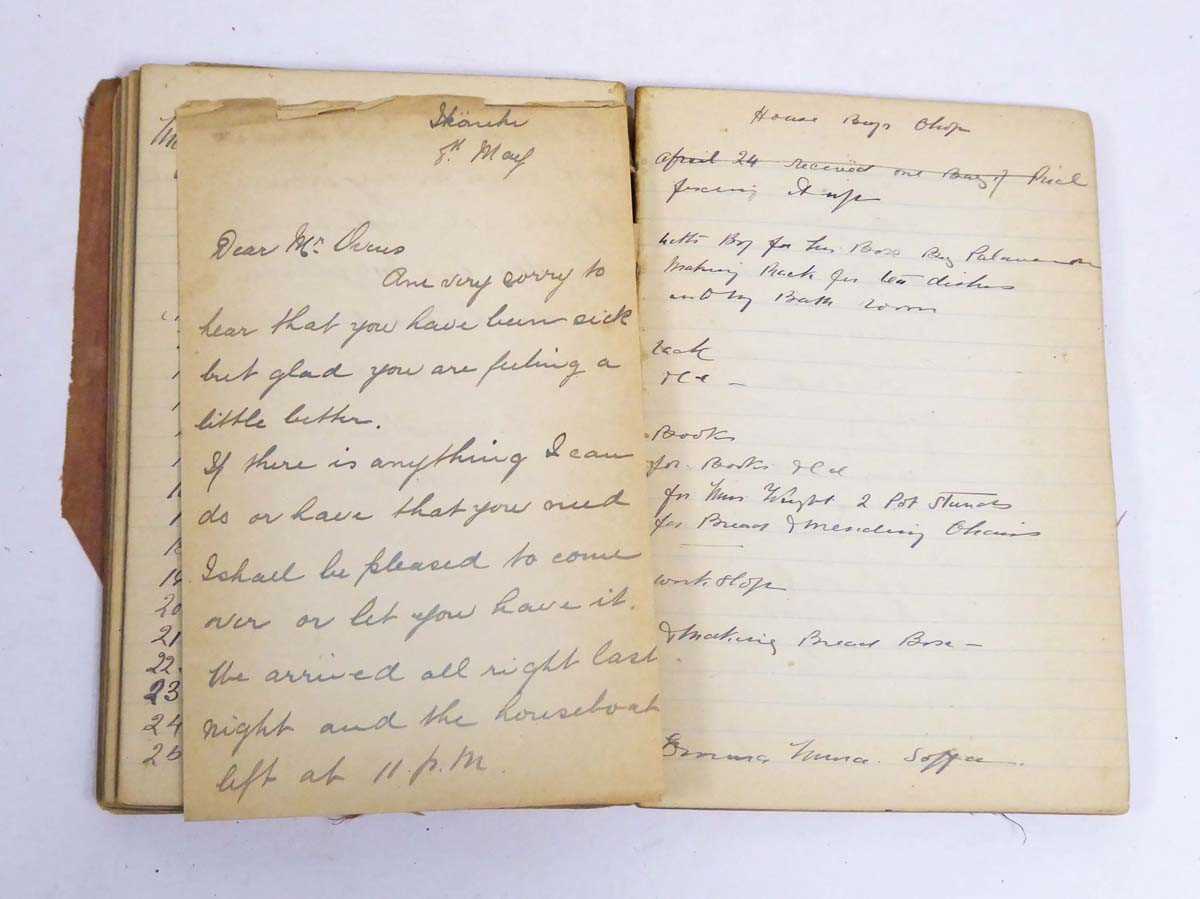 8th May
Dear Mr.
One very sorry to
hear that you have been sick
but glad you are feeling a
little better.
If there is anything I can
do or have that you need
I shall be pleased to come
over or let you have it.
We arrived all right last
night and the houseboat
left at 11 p.m.
18
20
21
22.
23
24
25
House Boys Chop
April 24 received one Bag of
fencing
Boy for his Box Boy
Making Rack for dishes
Bath room
rack
Books
for Books
for 2 Pot Stands
for Bread & Mending Chairs
work shop
& Making Bread Box -
Emma